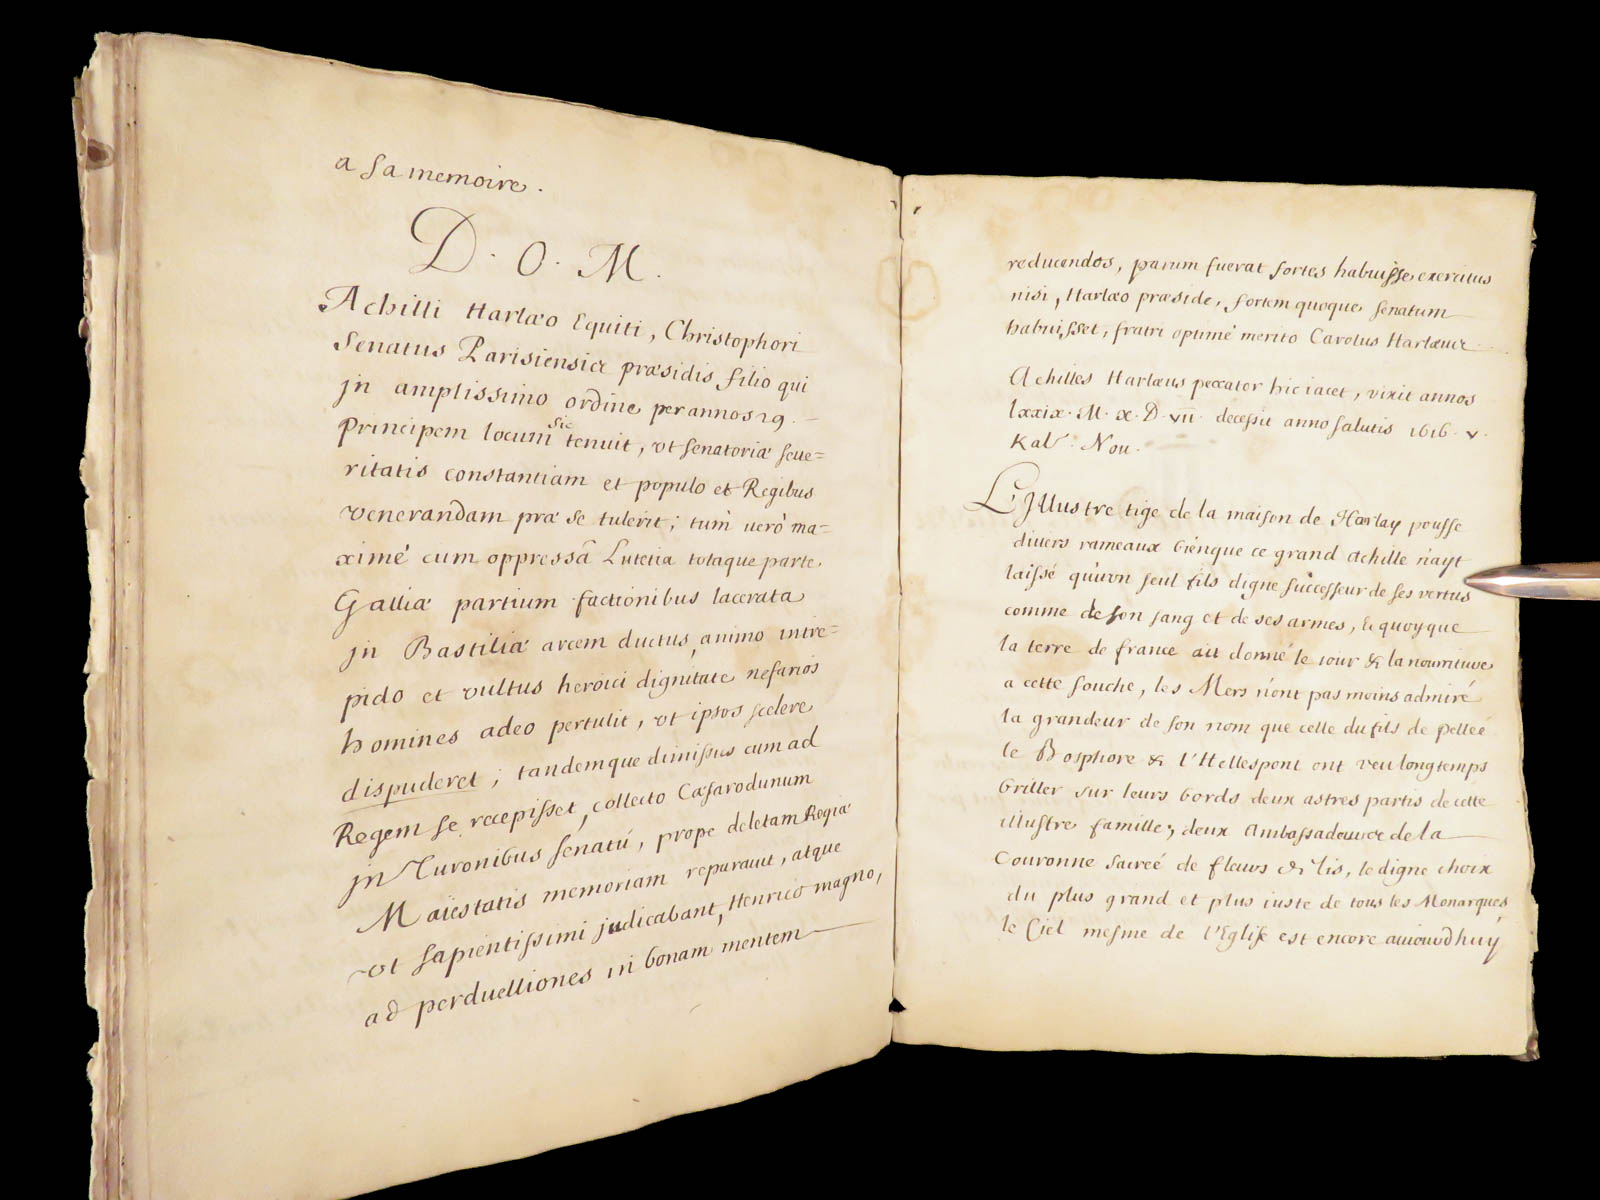 a sa memoire.
D. O. M.
Achilli Harlæo Equiti, Christophori
Senatus Parisiensis præsidis filio qui
jn amplissimo ordine per annos 29.
Principem locum sic tenuit, vt senatoriæ seue=
ritatis constantiam et populo et Regibus
venerandam præ se tulerit; tum verò ma=
ximé cum oppressâ Lutetia totaque parte
Galliæ partium factionibus lacerata
jn Bastiliæ arcem ductus, animo intre=
pido et vultus heroici dignitate nefarios
homines adeo pertulit, vt ipsos scelere
dispuderet; tandemque dimissus cum ad
Regem se recepisset, collecto Cæsarodunum
jn Turonibus senatú, prope deletam Regiæ
Maiestatis memoriam reparauit, atque
vt sapientissimi judicabant, Henrico magno,
ad perduelliones in bonam mentem
reducendos, parum fuerat fortes habuisse exercitus
nisi, Harlæo præside, fortem quoque senatum
habuisset, fratri optimé merito Carolus Harlæus.
Achilles Harlæus peccator hic iacet, vixit annos
lxxix. M. x. D. vii. decessit anno salutis 1616. v.
Kal. Nou.
L'Jllustre tige de la maison de Harlay pousse
divers rameaux bienque ce grand Achille n'ayt
laissé qu'un seul fils digne successeur de ses vertus
comme de son sang et de ses armes, & quoyque
la terre de france ait donné le iour & la nourriture
a cette souche, les Mers n'ont pas moins admiré
la grandeur de son nom que celle du fils de Pelleé
le Bosphore & l'Hellespont ont veu longtemps
briller sur leurs bords deux astres partis de cette
illustre famille, deux Ambassadeurs de la
Couronne sacreé de fleurs de lis, le digne choix
du plus grand et plus iuste de tous les Monarques
le Ciel mesme de l'Eglise est encore auiourdhuy